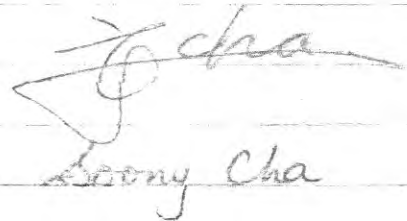 cha
Soony Cha